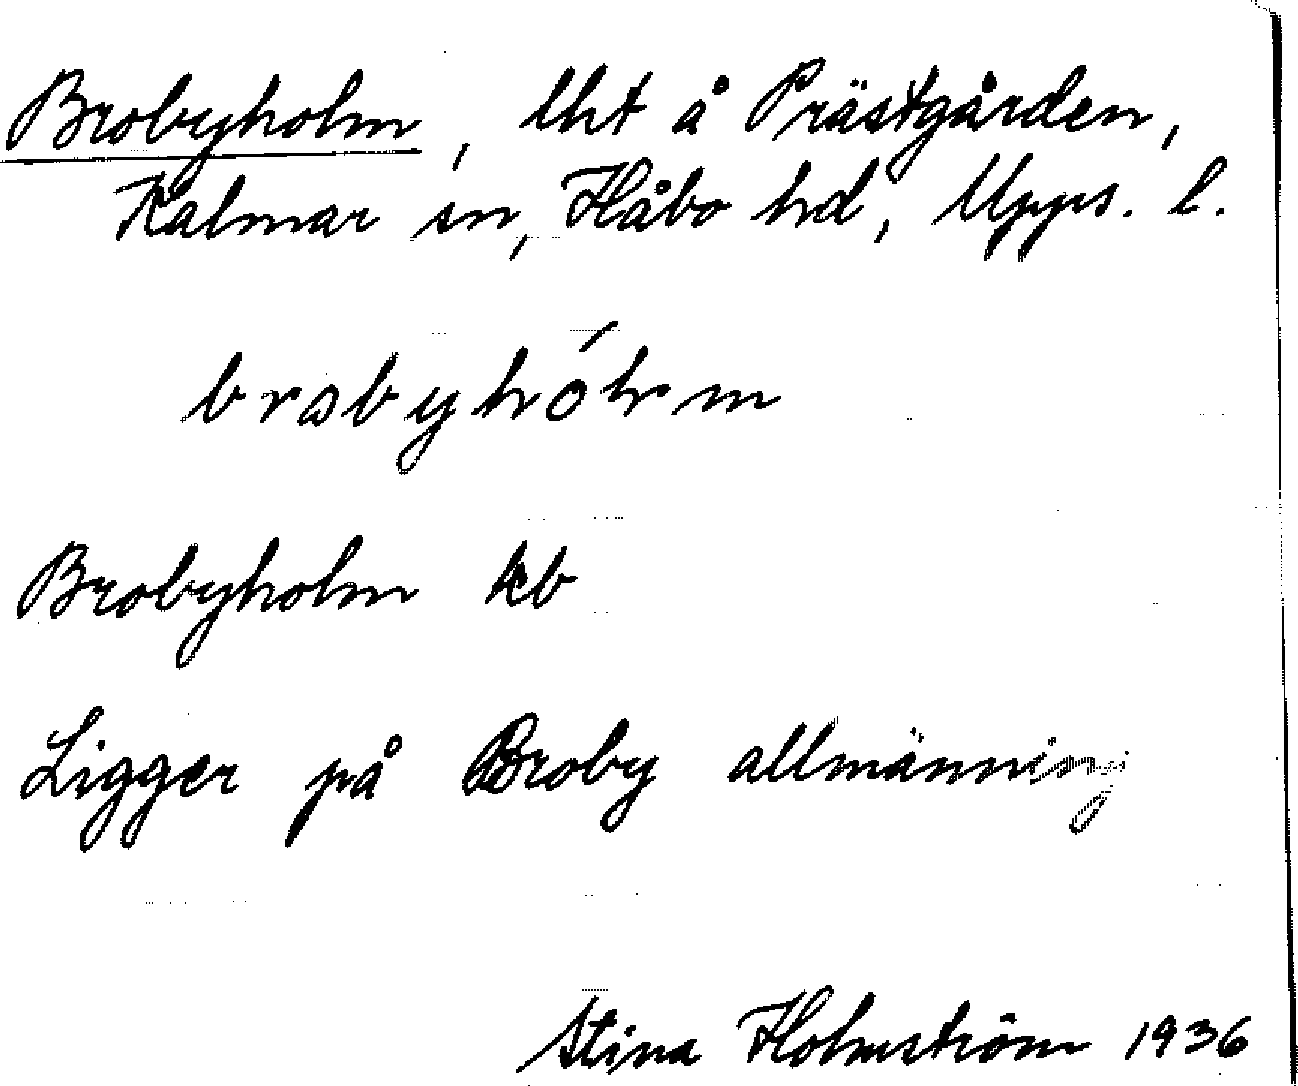 Brobyholm, lht å Prästgården,
Kalmar sn, Håbo hd, Upps. l.
Brobyholm kb
Ligger på Broby allmänning
Stina Holmström 1936